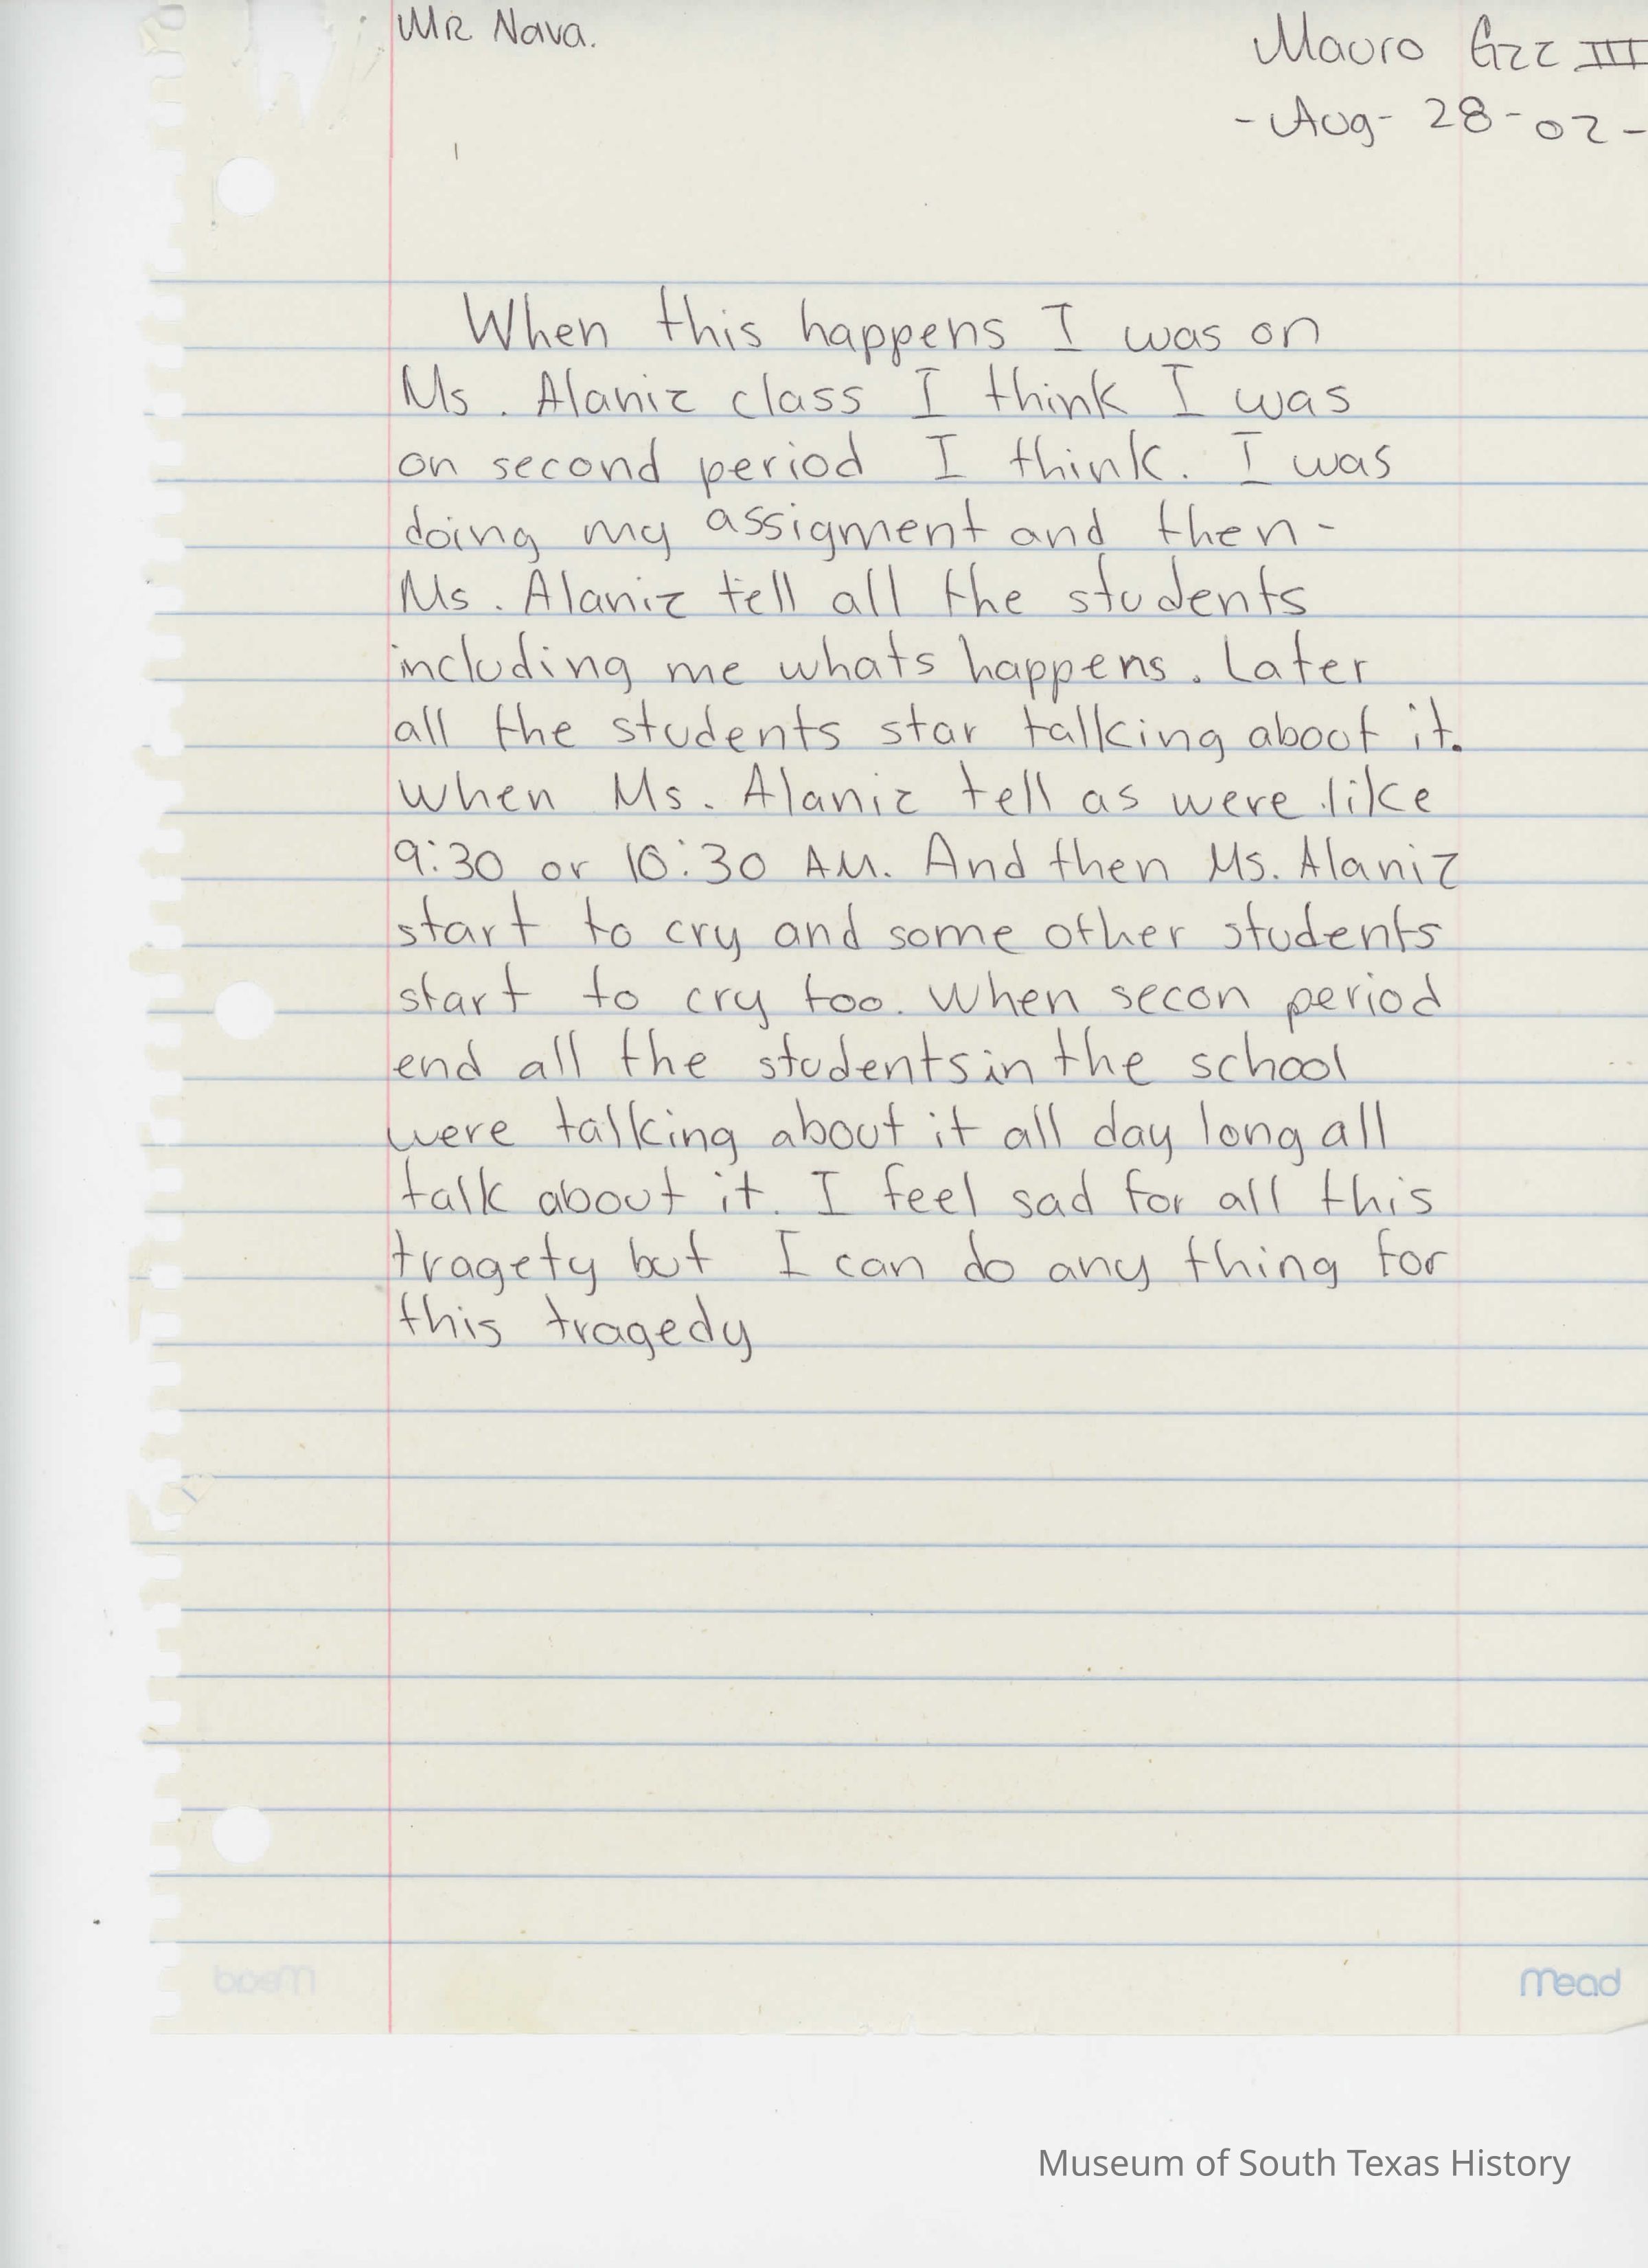 Mr Nava.
Mauro Gzz III
- Aug - 28 - 02 -
When this happens I was on
Ms. Alaniz class I think I was
on second period I think. I was
doing my assigment and then -
Ms. Alaniz tell all the students
including me whats happens. Later
all the students star talking about it.
When Ms. Alaniz tell as were like
9:30 or 10:30 AM. And then Ms. Alaniz
start to cry and some other students
start to cry too. When secon period
end all the students in the school
were talking about it all day long all
talk about it. I feel sad for all this
tragety but I can do any thing for
this tragedy
Mead
Museum of South Texas History